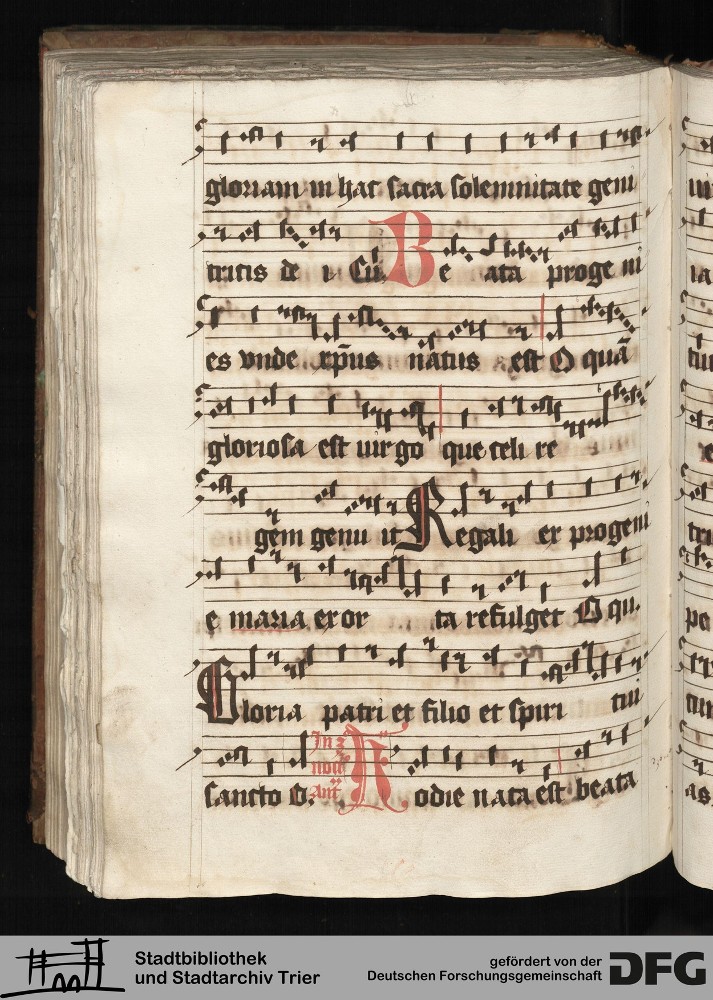 gloriam in hac sacra solemnitate geni
tricis de i Cū Be ata proge ni
es vnde xp̄us natus est O quā
gloriosa est uirgo que celi re
gem genu it Regali ex progeni
e maria exor ta refulget O qu.
Gloria patri et filio et spiri tui
In
sancto O. Hodie nata est beata
Stadtbibliothek
und Stadtarchiv Trier
gefördert von der
Deutschen Forschungsgemeinschaft
DFG